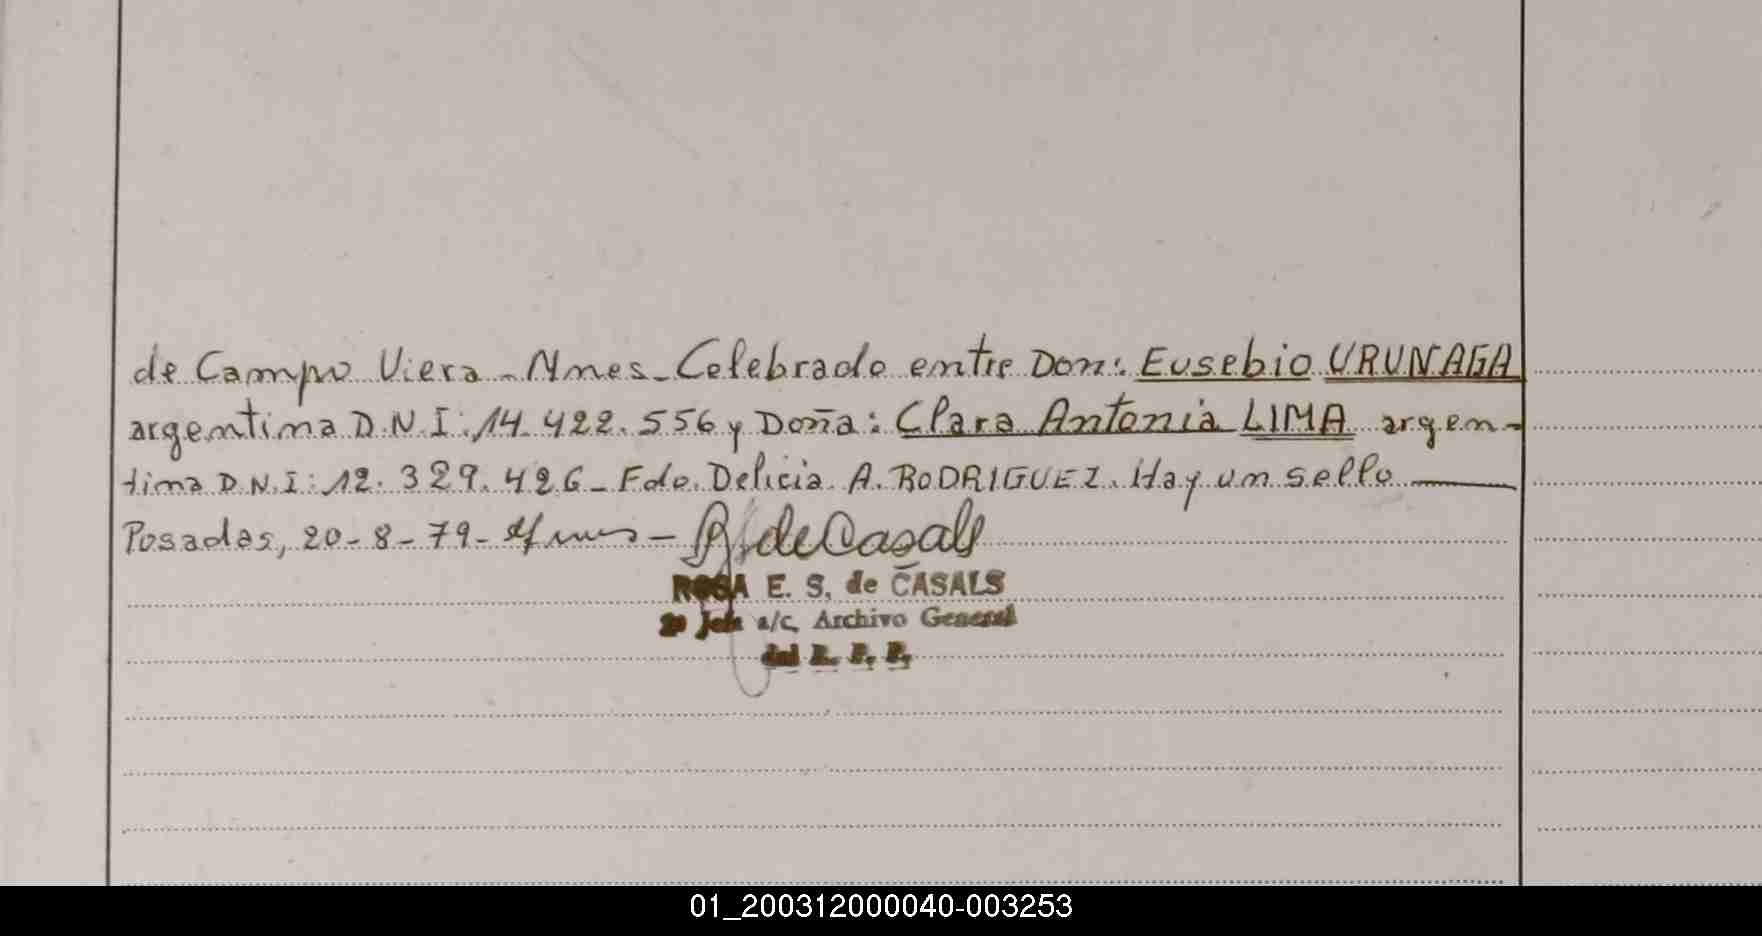 de Campo Viera - Mnes - Celebrado entre Don: Eusebio URUNAGA
argentina D.N.I: 14.422.556 y Doña: Clara Antonia LIMA argen-
tina D.N.I: 12.329.426 - Fdo. Delicia A. RODRIGUEZ. Hay un sello
Posadas, 20-8-79- Mnes - R. de Casals
ROSA E. S. de CASALS
2ª Jefe a/c. Archivo General
del R. P. P.
01_200312000040-003253